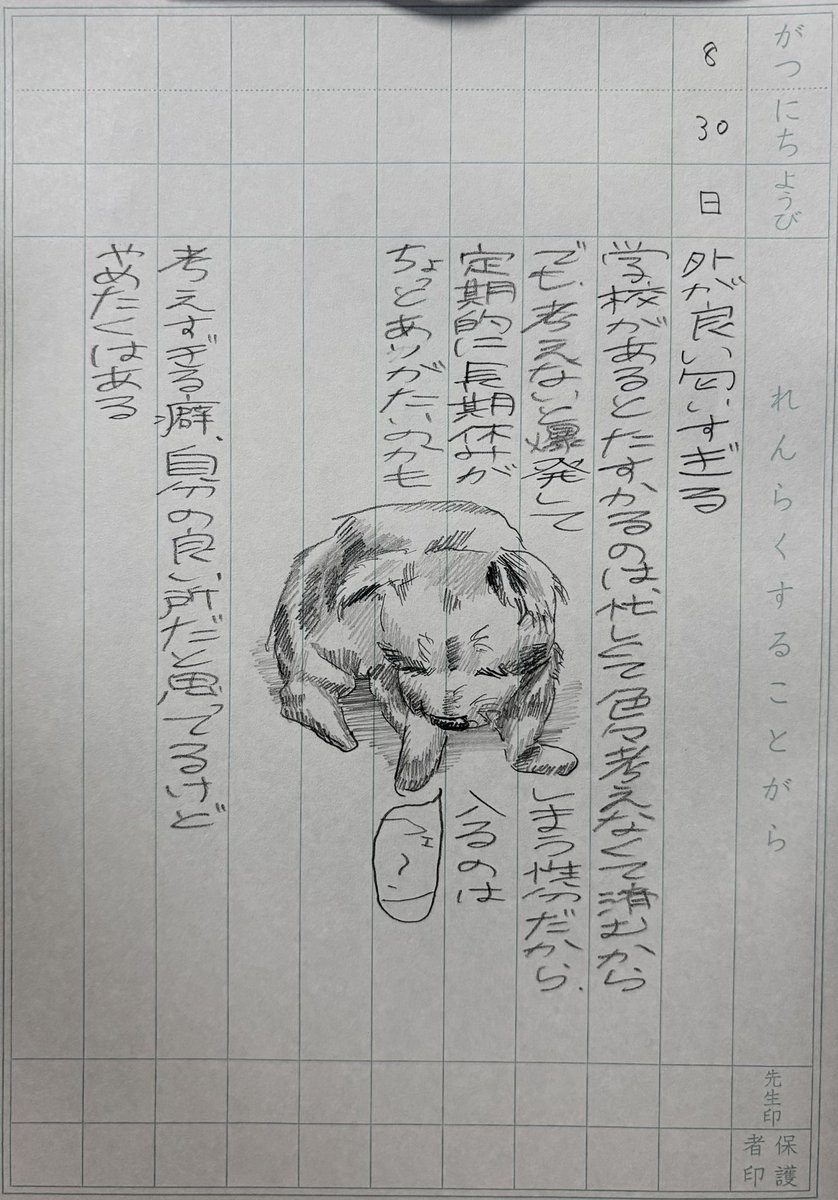 がつ
にち
ようび
れんらくすることがら
先生印
保護者印
8
30
日
外が良い匂いすぎる
学校があるとたすかるのは、忙しくて色々考えなくて済むから
でも、考えないと爆発してしまう性分だから、
定期的に長期休みが入るのは
ちょっとありがたいのかも
フェ〜
考えすぎる癖、自分の良い所だと思てるけど
やめたくはある